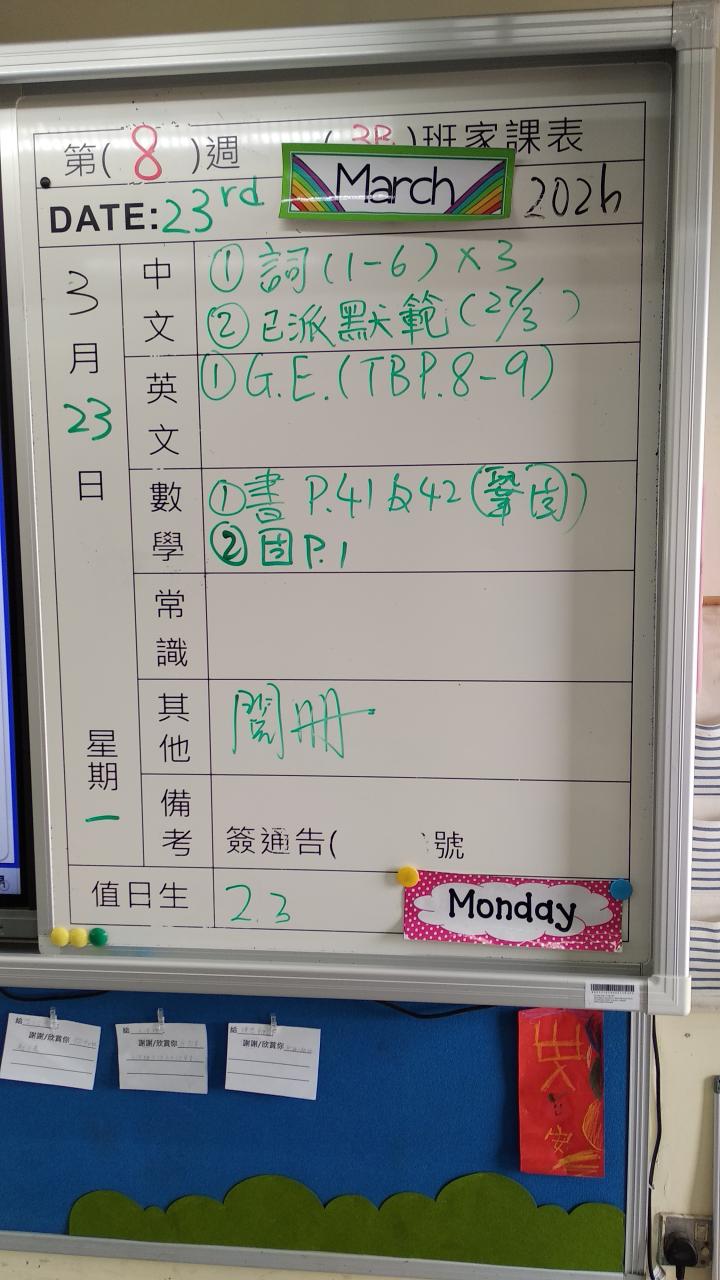 第( 8 )週 ( 3B )班家課表
DATE: 23rd March 2026
3月23日 星期一
中文
① 詞(1-6)×3
② 已派默範(27/3)
英文
① G.E.(TBP.8-9)
數學
① 書 P.41及42(鞏固)
② 固P.1
常識
其他
閱冊
備考
簽通告( 號
值日生
2.3
Monday
給
謝謝/欣賞你
給
謝謝/欣賞你
給
謝謝/欣賞你